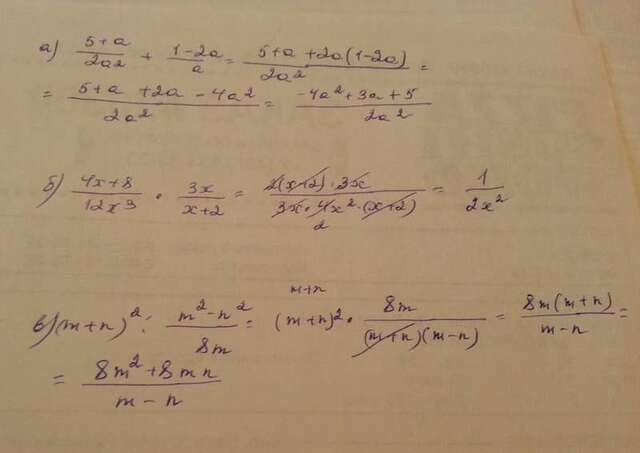 а) (5+a)/(2a²) + (1-2a)/a = (5+a+2a(1-2a))/(2a²) =
= (5+a+2a-4a²)/(2a²) = (-4a²+3a+5)/(2a²)
б) (4x+8)/(12x³) · (3x)/(x+2) = (2(x+2)·3x)/(3x·4x²·(x+2)) = 1/(2x²)
2
m+n
в) (m+n)² : (m²-n²)/(8m) = (m+n)² · (8m)/((m+n)(m-n)) = (8m(m+n))/(m-n) =
= (8m²+8mn)/(m-n)